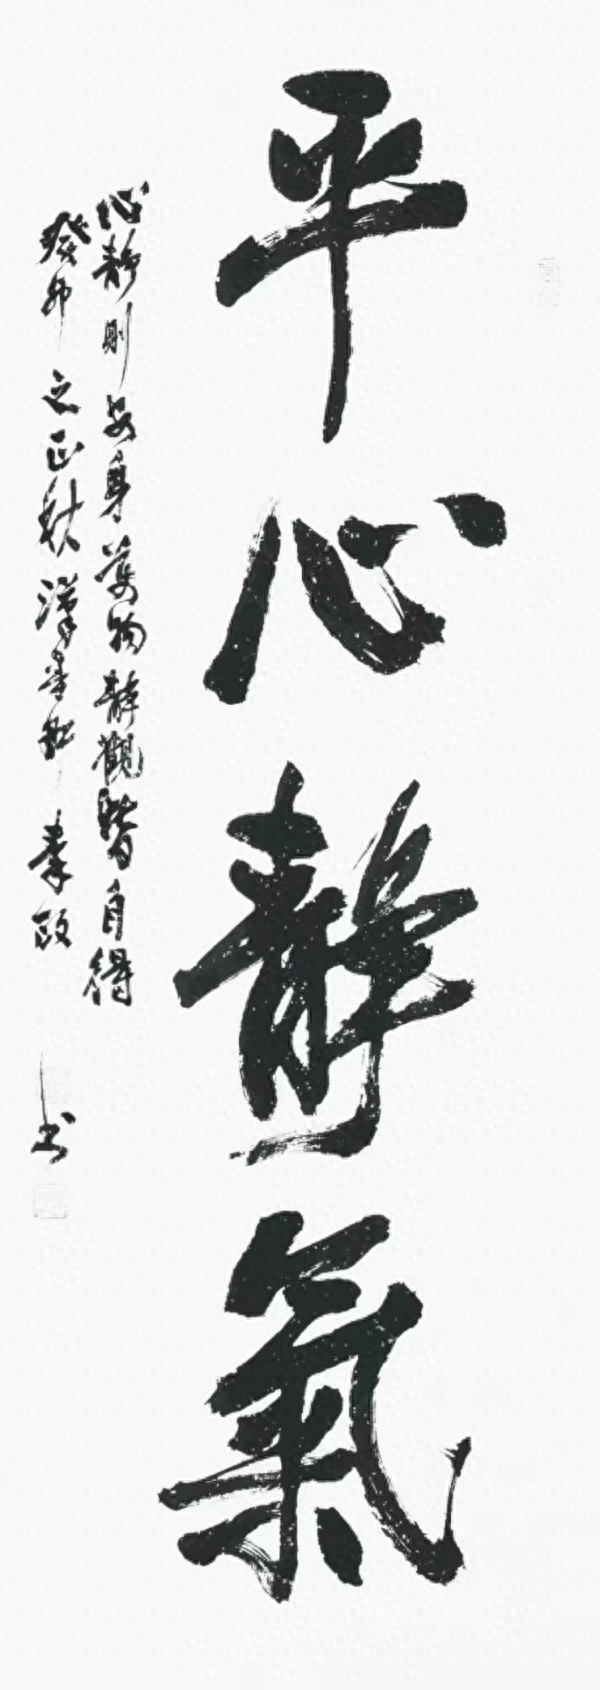 平心靜氣
心靜則安身萬物靜觀皆自得
癸卯之正秋漢 書